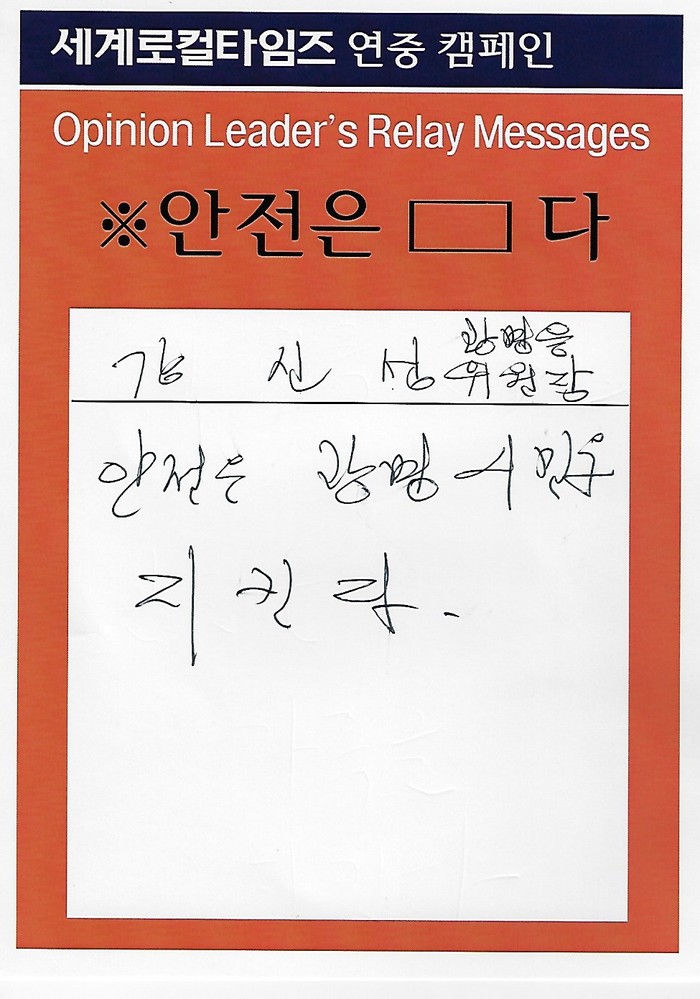 세계로컬타임즈 연중 캠페인
Opinion Leader's Relay Messages
※안전은 ▭ 다
강 신 성 광명을
위원장
안전은 광명시민을
지킨다.